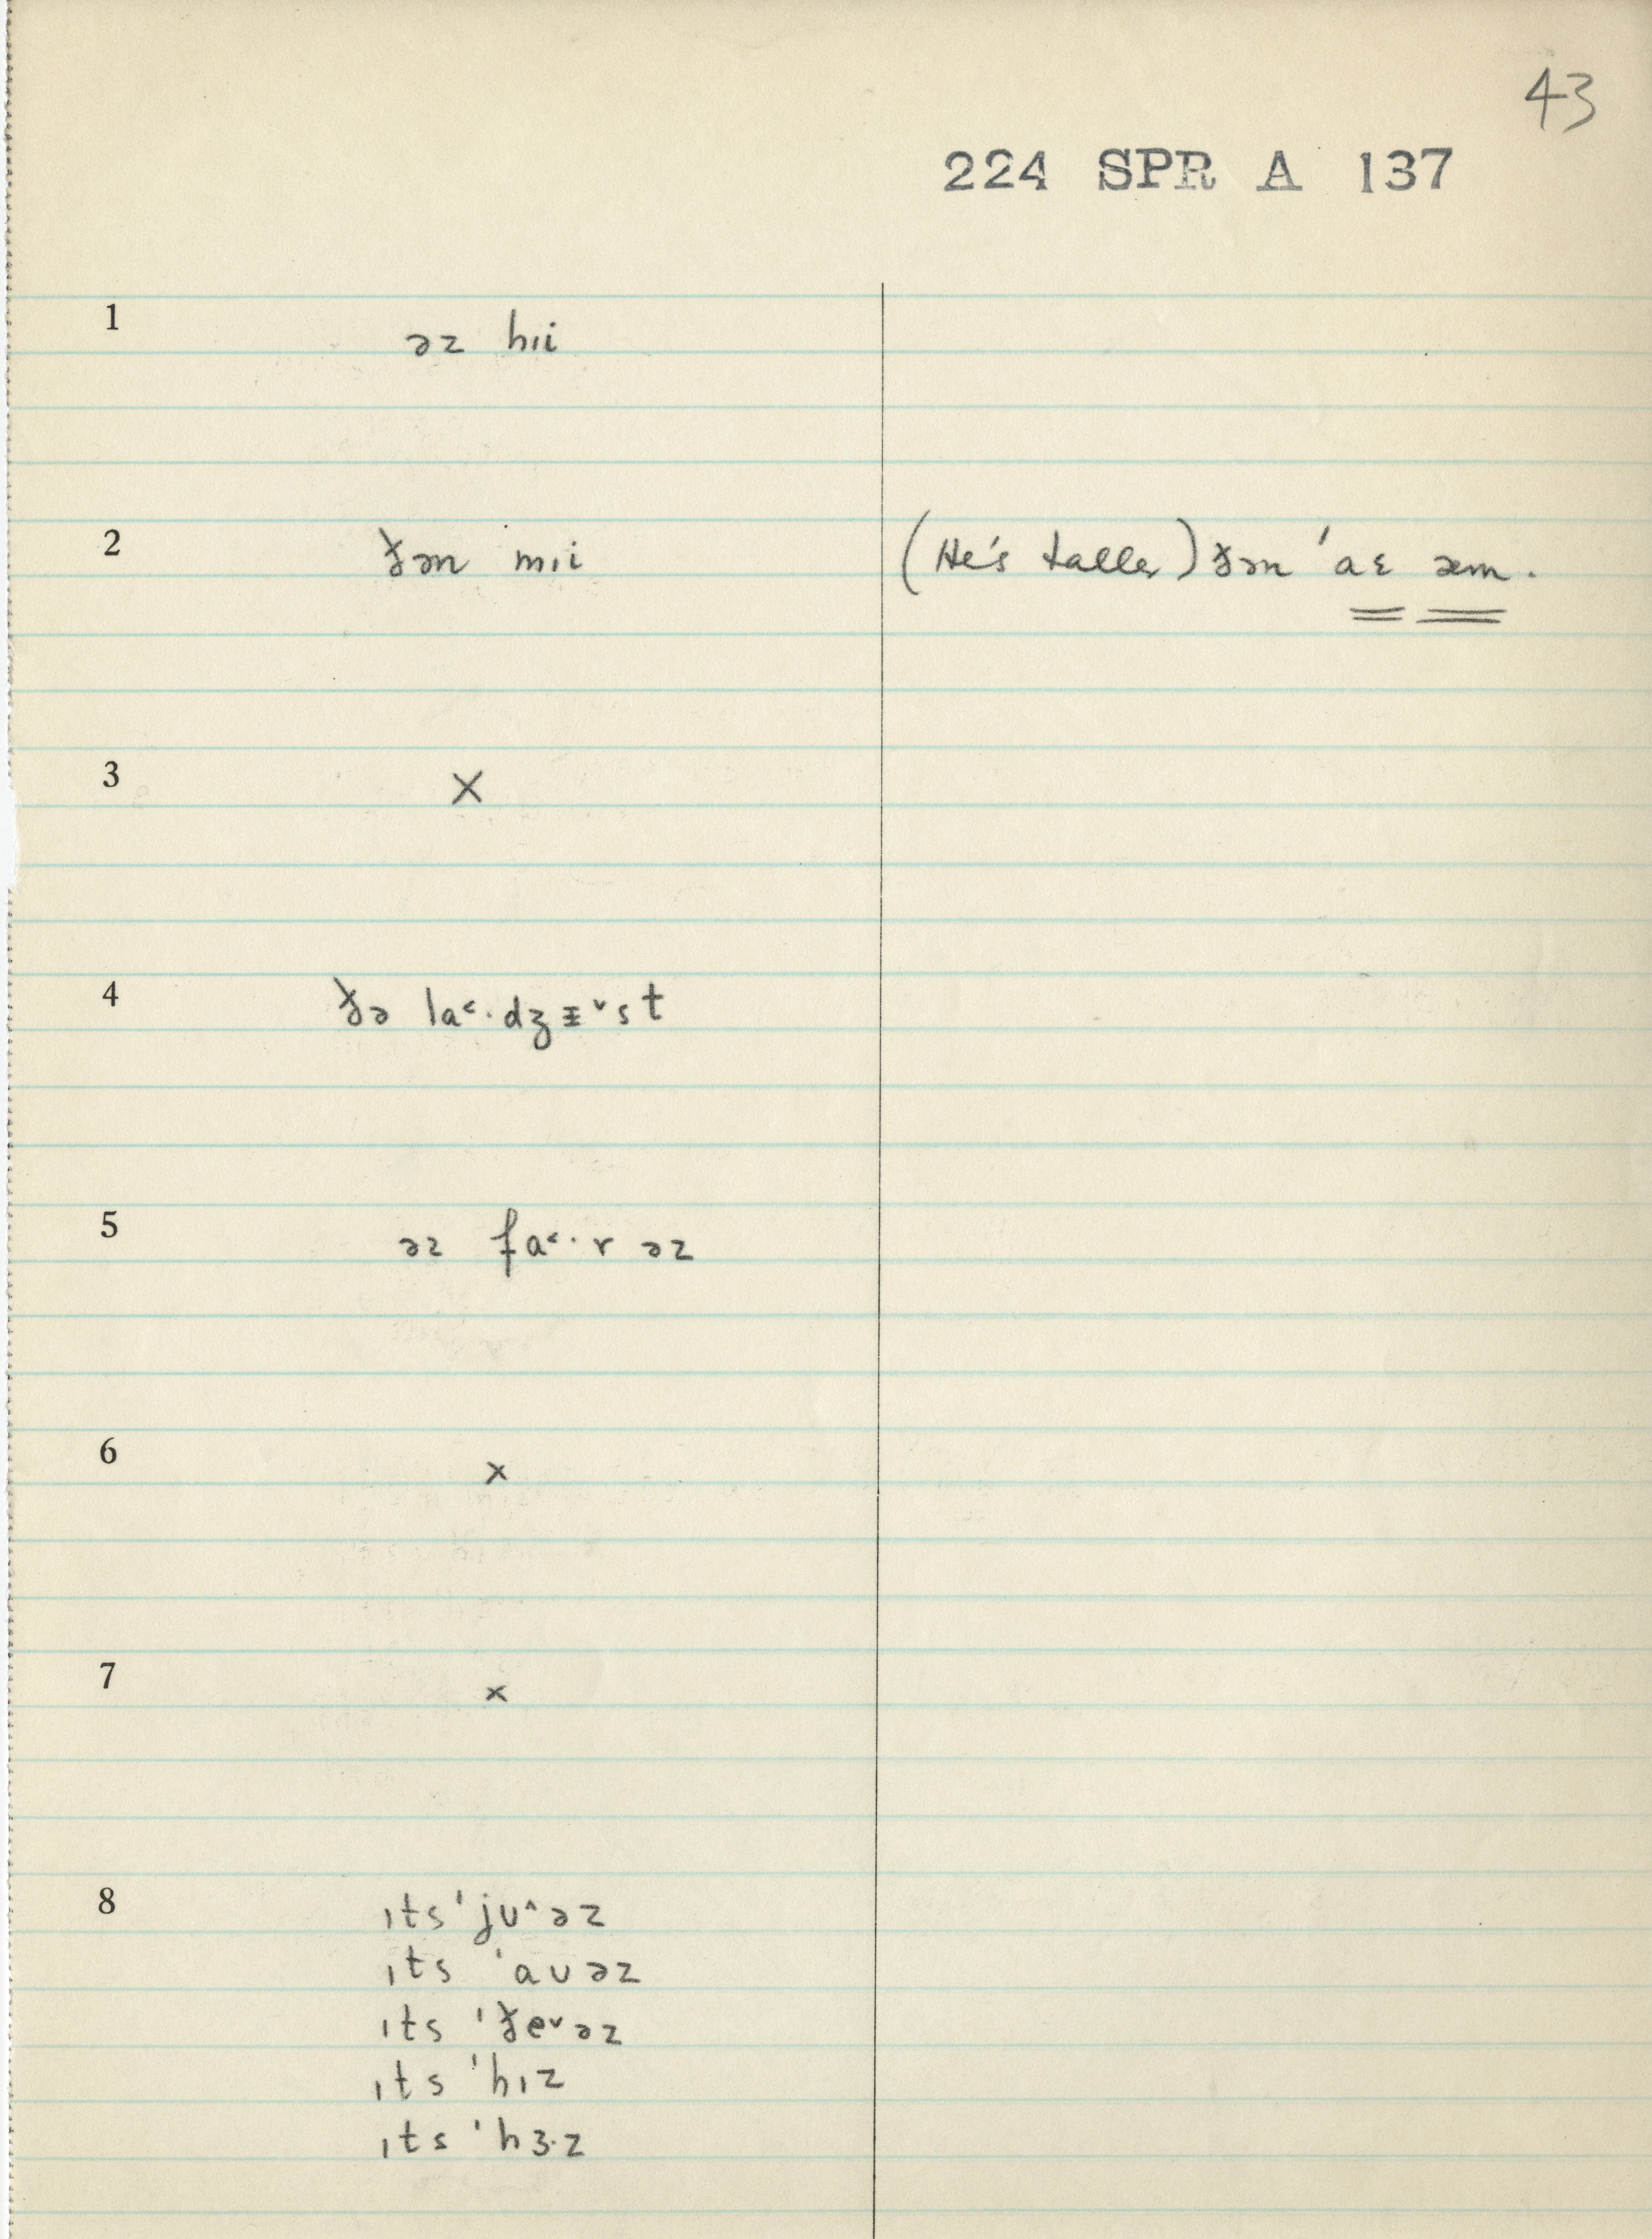 43
224 SPR A 137
1 əz hɪi
2 ðən mɪi (He's taller) ðən 'aɛ æm.
3 X
4 ðə la˂·dʒɪ˅st
5 əz fa˂·r əz
6 x
7 x
8 ɪts 'jᴜ˄əz
ɪts 'aᴜəz
ɪts 'ðe˅əz
ɪts 'hɪz
ɪts 'hɜ·z